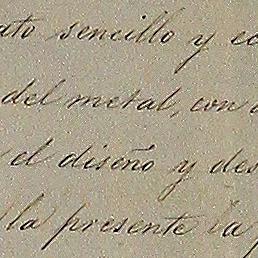 ato sencillo y ec
del metal, con
el diseño y des
la presente la